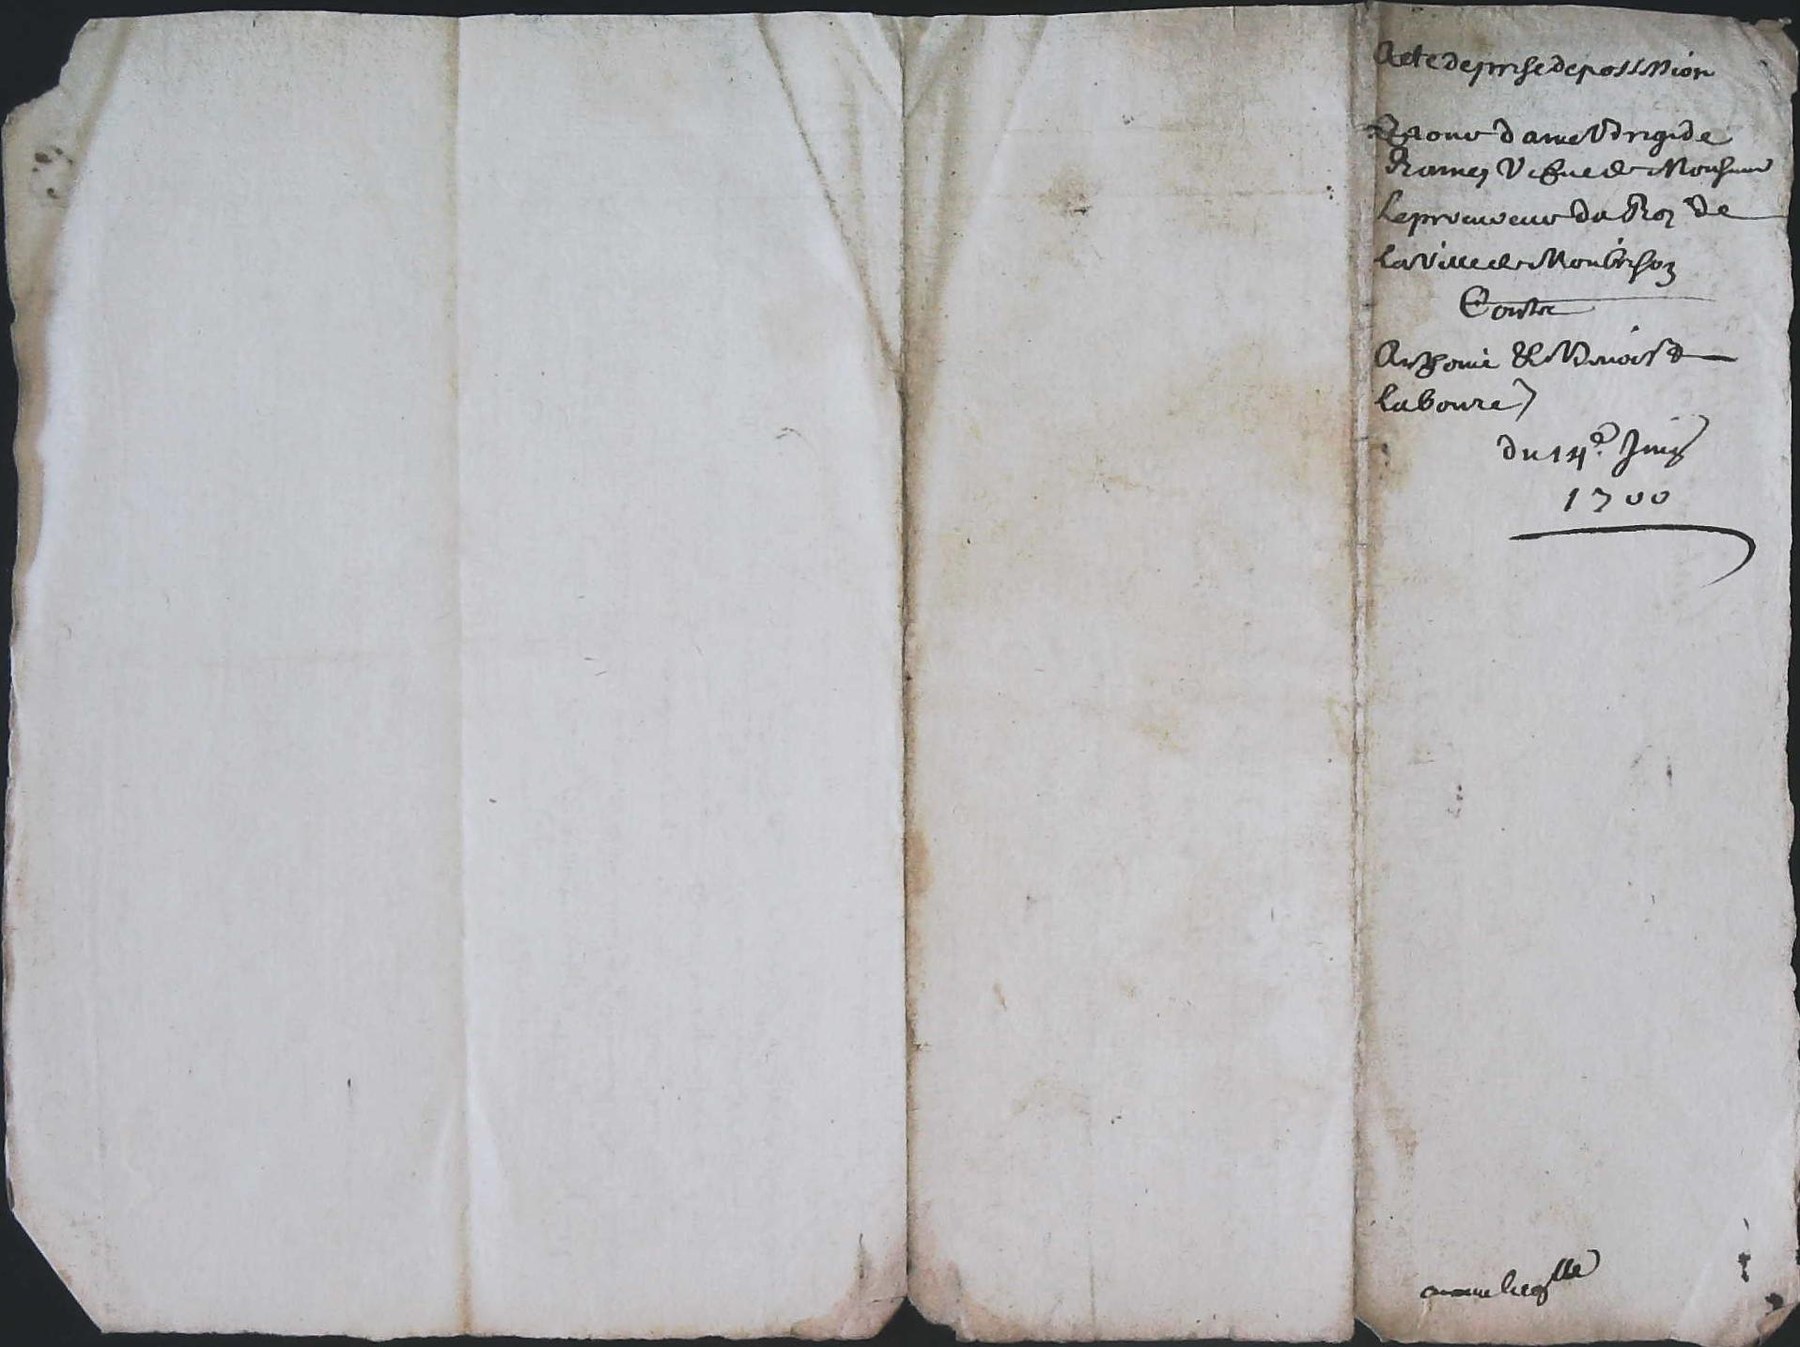 Acte de prise de possession
Pour dame Brigide
Ramey veue de Monsieur
Le procureur du Roy de
La Ville de Monbrison
Contre
Anthoine & Benoist
Laboure
du 14e. Juin
1700